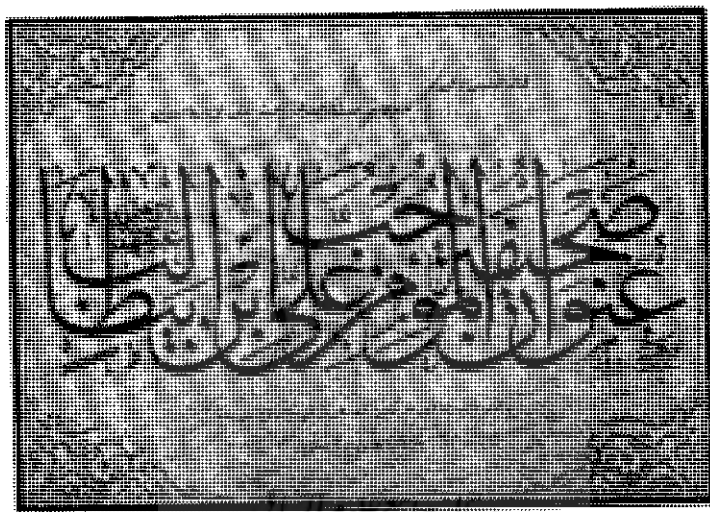 عنوان صحيفة المؤمن حب علي بن ابي طالب